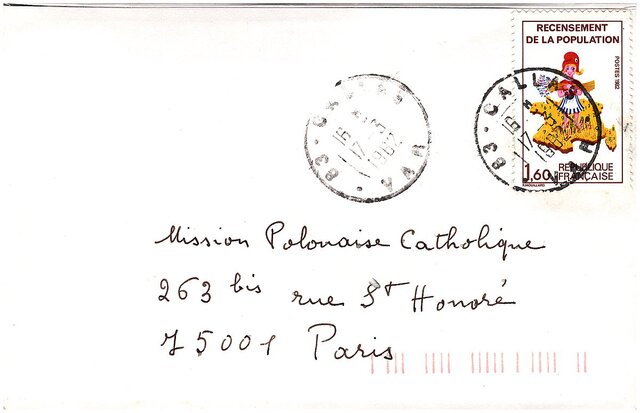 RECENSEMENT
DE LA POPULATION
POSTES 1982
1,60
REPUBLIQUE
FRANÇAISE
83 - CALLAS
16 H
17 -
1982
VAR
83 - CALLAS
16 H
17 -
1982
VAR
Mission Polonaise Catholique
263 bis rue St Honoré
75001 Paris